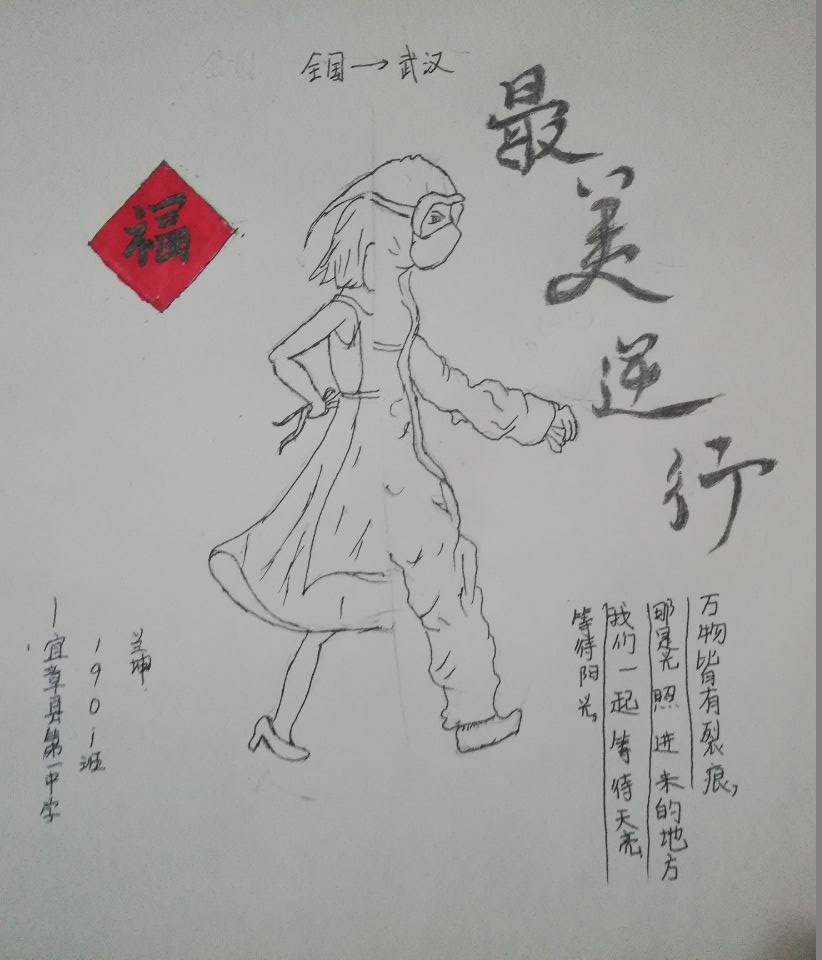 全国→武汉
最美逆行
福
万物皆有裂痕，
那是光照进来的地方
我们一起等待天亮
等待阳光。
兰坤
1901班
—宜章县第一中学